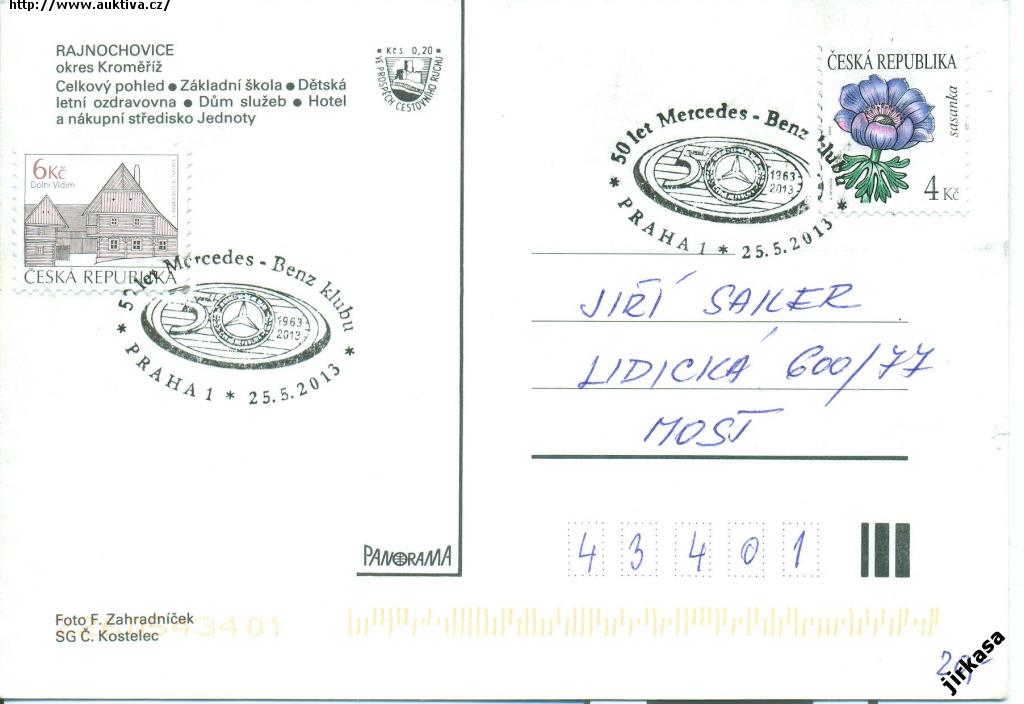 http://www.auktiva.cz/
RAJNOCHOVICE
okres Kroměříž
Celkový pohled ● Základní škola ● Dětská
letní ozdravovna ● Dům služeb ● Hotel
a nákupní středisko Jednoty
Kčs 0,20
VE PROSPĚCH CESTOVNÍHO RUCHU
6Kč
Dolní Vidim
ČESKÁ REPUBLIKA
* 50 let Mercedes - Benz klubu *
1963
2013
PRAHA 1 * 25.5.2013
ČESKÁ REPUBLIKA
sasanka
4 Kč
* 50 let Mercedes - Benz klubu *
50
1963
2013
PRAHA 1 * 25.5.2013
JIŘÍ SAILER
LIDICKÁ 600/77
MOST
43401
PANORAMA
Foto F. Zahradníček
SG Č. Kostelec
43401
jirkasa